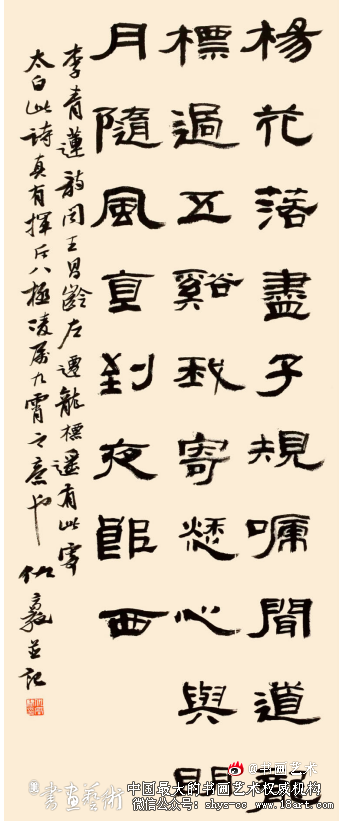 楊花落盡子規嗁聞道龍
標過五谿我寄愁心與明
月隨風直到夜郎西
李青蓮聞王昌齡左遷龍標遥有此寄
太白此詩真有揮斥八極凌厲九霄之意也 並記
@书画艺术
書畫藝術
中国最大的书画艺术权威机构
微信公众号：shys-cc www.18art.com